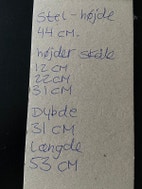 Stel-højde
44 cm.
højder skåle
12 CM
22CM
31 CM
Dybde
31 CM
Længde
53 CM